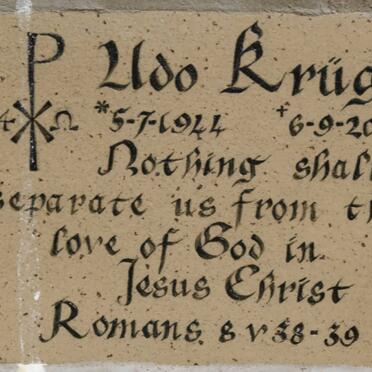 Udo Krüg
α Ω *5-7-1944 +6-9-20
Nothing shall
separate us from th
love of God in
Jesus Christ
Romans. 8 v 38-39